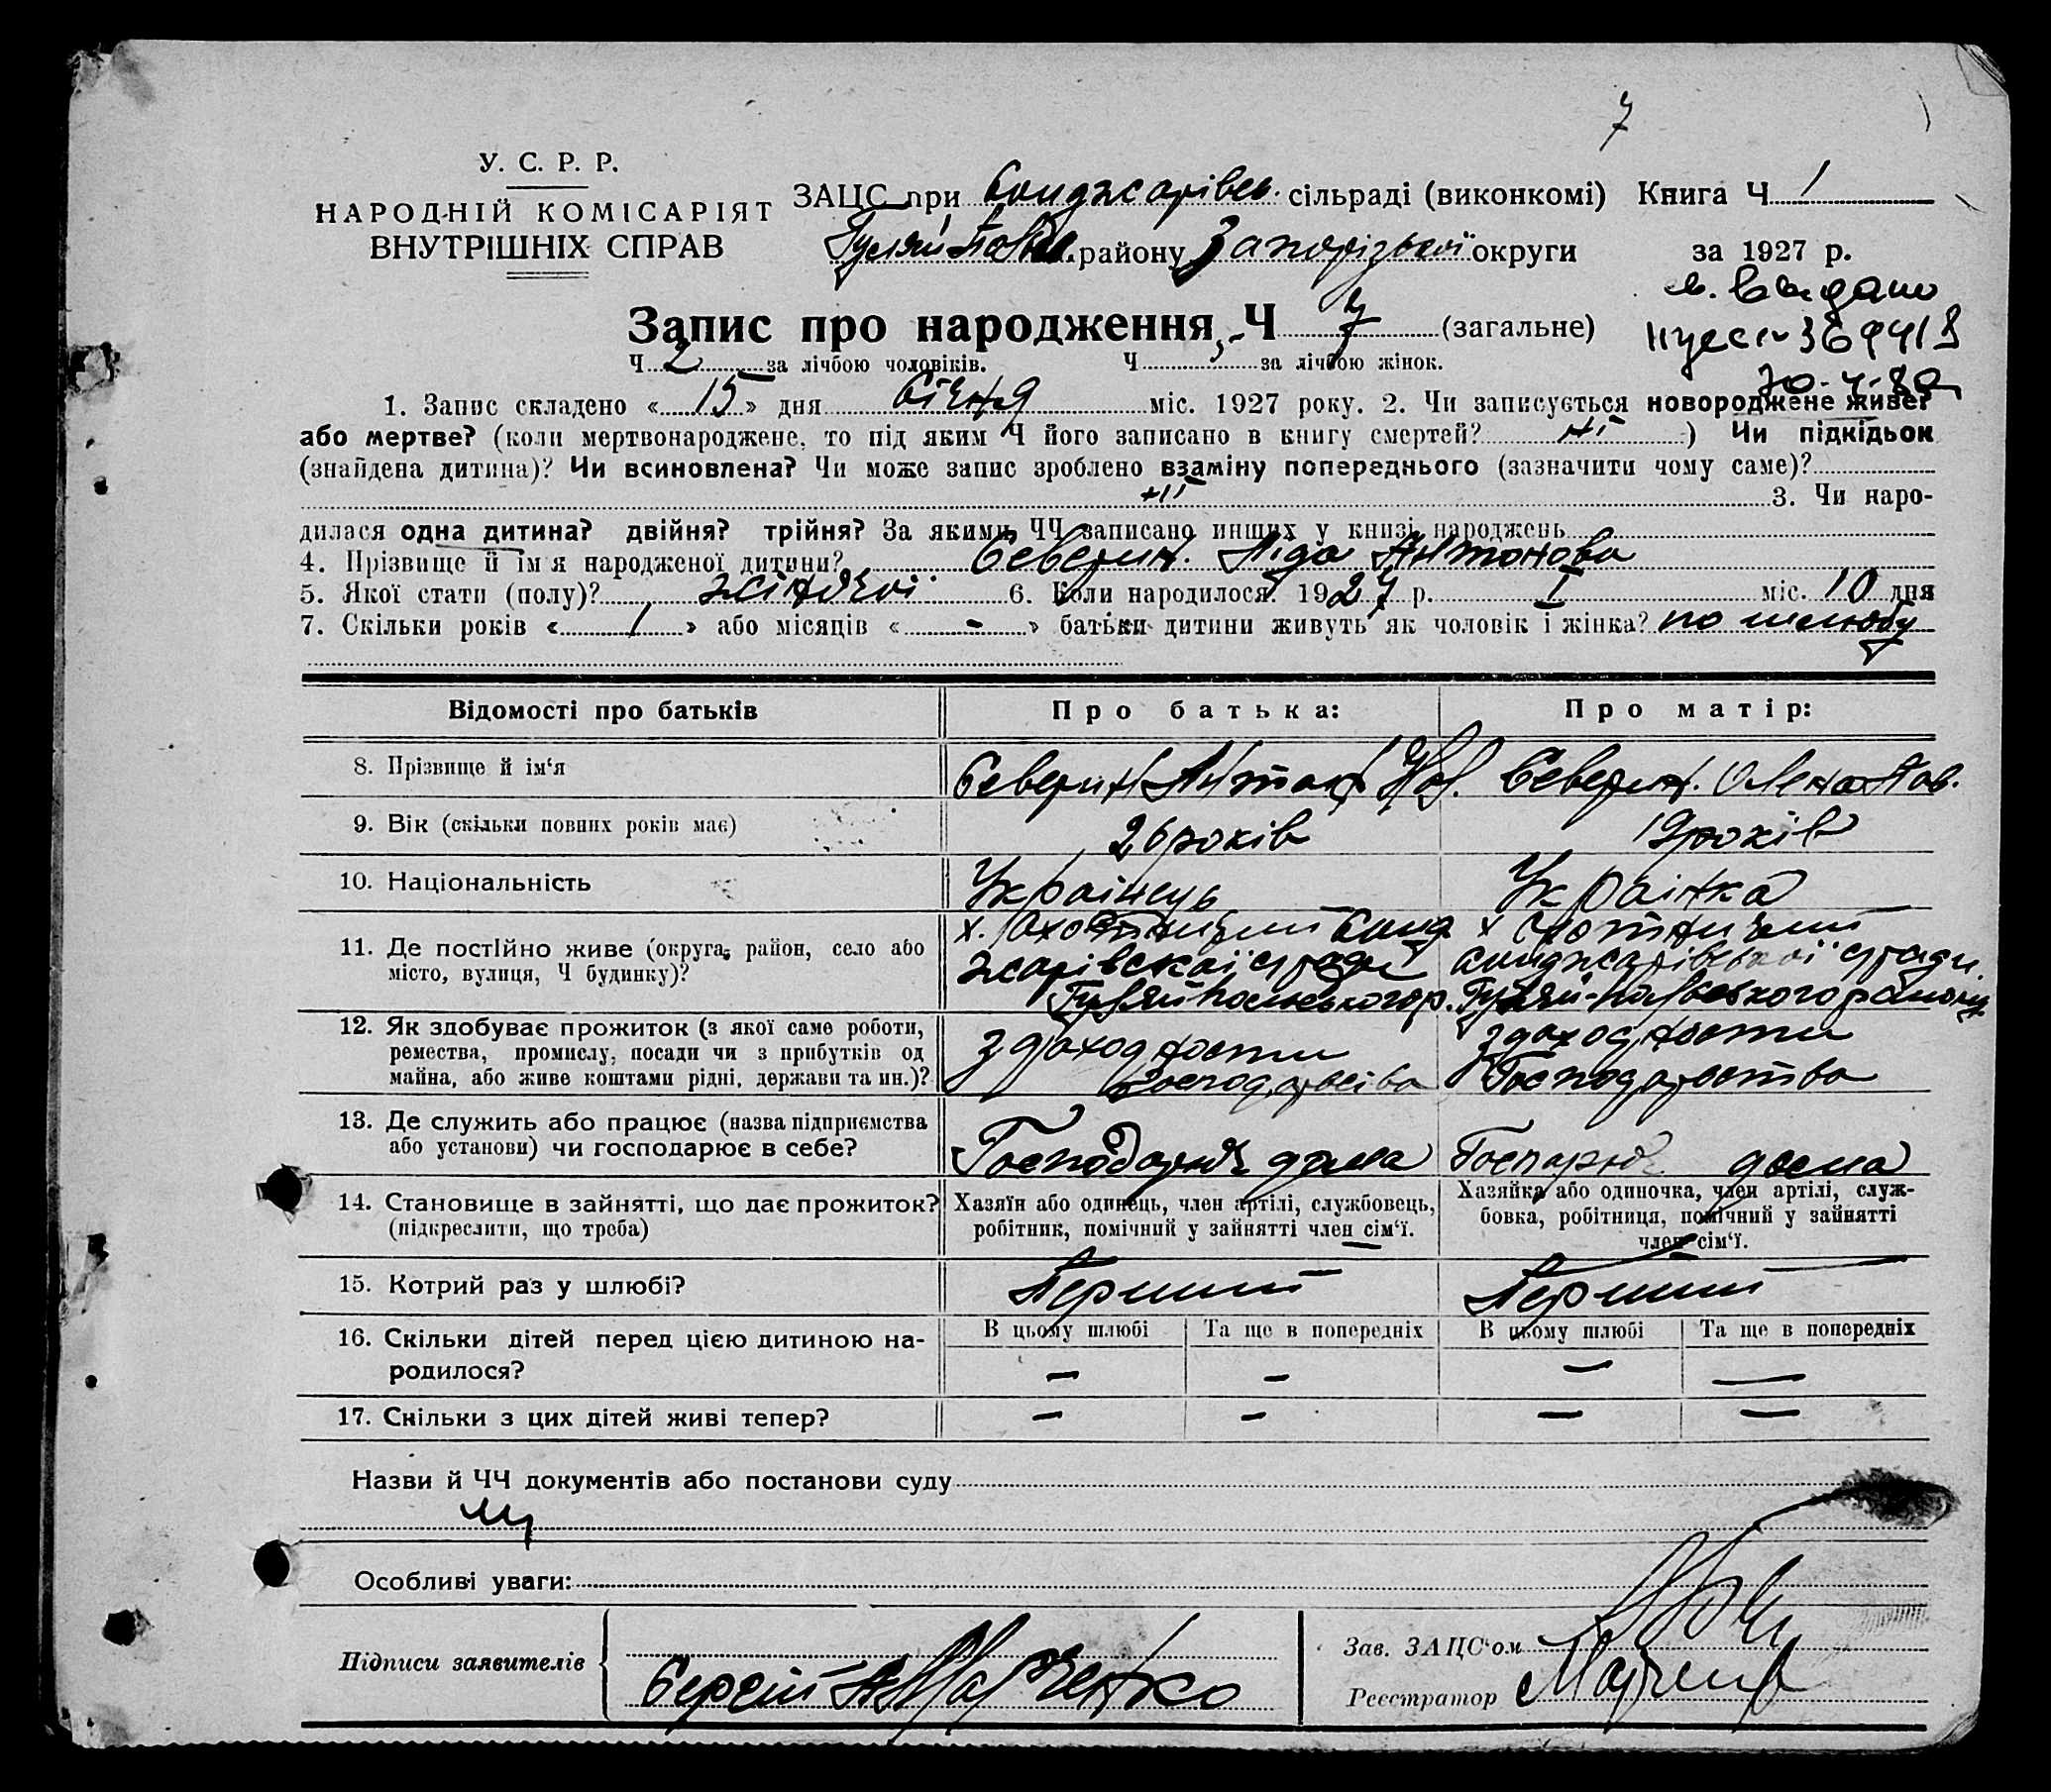 7
У. С. Р. Р.
НАРОДНІЙ КОМІСАРІЯТ
ВНУТРІШНІХ СПРАВ
ЗАЦС при Санджарівсь. сільраді (виконкомі) Книга Ч 1
Гуляй Павл. району Запорізької округи за 1927 р.
Запис про народження, Ч 7 (загальне)
Ч 2 за лічбою чоловіків. Ч за лічбою жінок.
1. Запис складено « 15 » дня січня міс. 1927 року. 2. Чи записується новороджене живе?
або мертве? (коли мертвонароджене, то під яким Ч його записано в книгу смертей? ні ) Чи підкідьок
(знайдена дитина)? Чи всиновлена? Чи може запис зроблено взаміну попереднього (зазначити чому саме)?
ні 3. Чи наро-
дилася одна дитина? двійня? трійня? За якими ЧЧ записано инших у книзі народжень
4. Прізвище й ім'я народженої дитини? Северин. Ліда Антонова
5. Якої стати (полу)? жіночої 6. Коли народилося? 1927 р. I міс. 10 дня
7. Скільки років « 1 » або місяців « - » батьки дитини живуть як чоловік і жінка? по шлюбу
Відомості про батьків Про батька: Про матір:
8. Прізвище й ім'я Северин Антон Северин. Олена Пав.
9. Вік (скільки повних років має) 26 років 19 років
10. Національність Українець Українка
11. Де постІйно живе (округа, район, село або
місто, вулиця, Ч будинку)?
х. Охотничий Санд
жарівскої сради
Гуляйпольського р.
х Охотничий
Санджарівської сради.
Гуляй-польського району
12. Як здобуває прожиток (з якої саме роботи,
ремества, промислу, посади чи з прибутків од
майна, або живе коштами рідні, держави та ин.)?
з доходности
господарства
з доходности
Господарства
13. Де служить або працює (назва підприємства
або установи) чи господарює в себе?
Господарює дома Госпарює дома
14. Становище в зайнятті, що дає прожиток?
(підкреслити, що треба)
Хазяїн або одинець, член артілі, службовець,
робітник, помічний у зайнятті член сім'ї.
Хазяйка або одиночка, член артілі, служ-
бовка, робітниця, помічний у зайнятті
член сім'ї.
15. Котрий раз у шлюбі? Перший Перший
16. Скільки дітей перед цією дитиною на-
родилося?
В цьому шлюбі Та ще в попередніх В цьому шлюбі Та ще в попередніх
— — — —
17. Скільки з цих дітей живі тепер? — — — —
Назви й ЧЧ документів або постанови суду
Особливі уваги:
Підписи заявителів
Зав. ЗАЦС'ом
Реєстратор